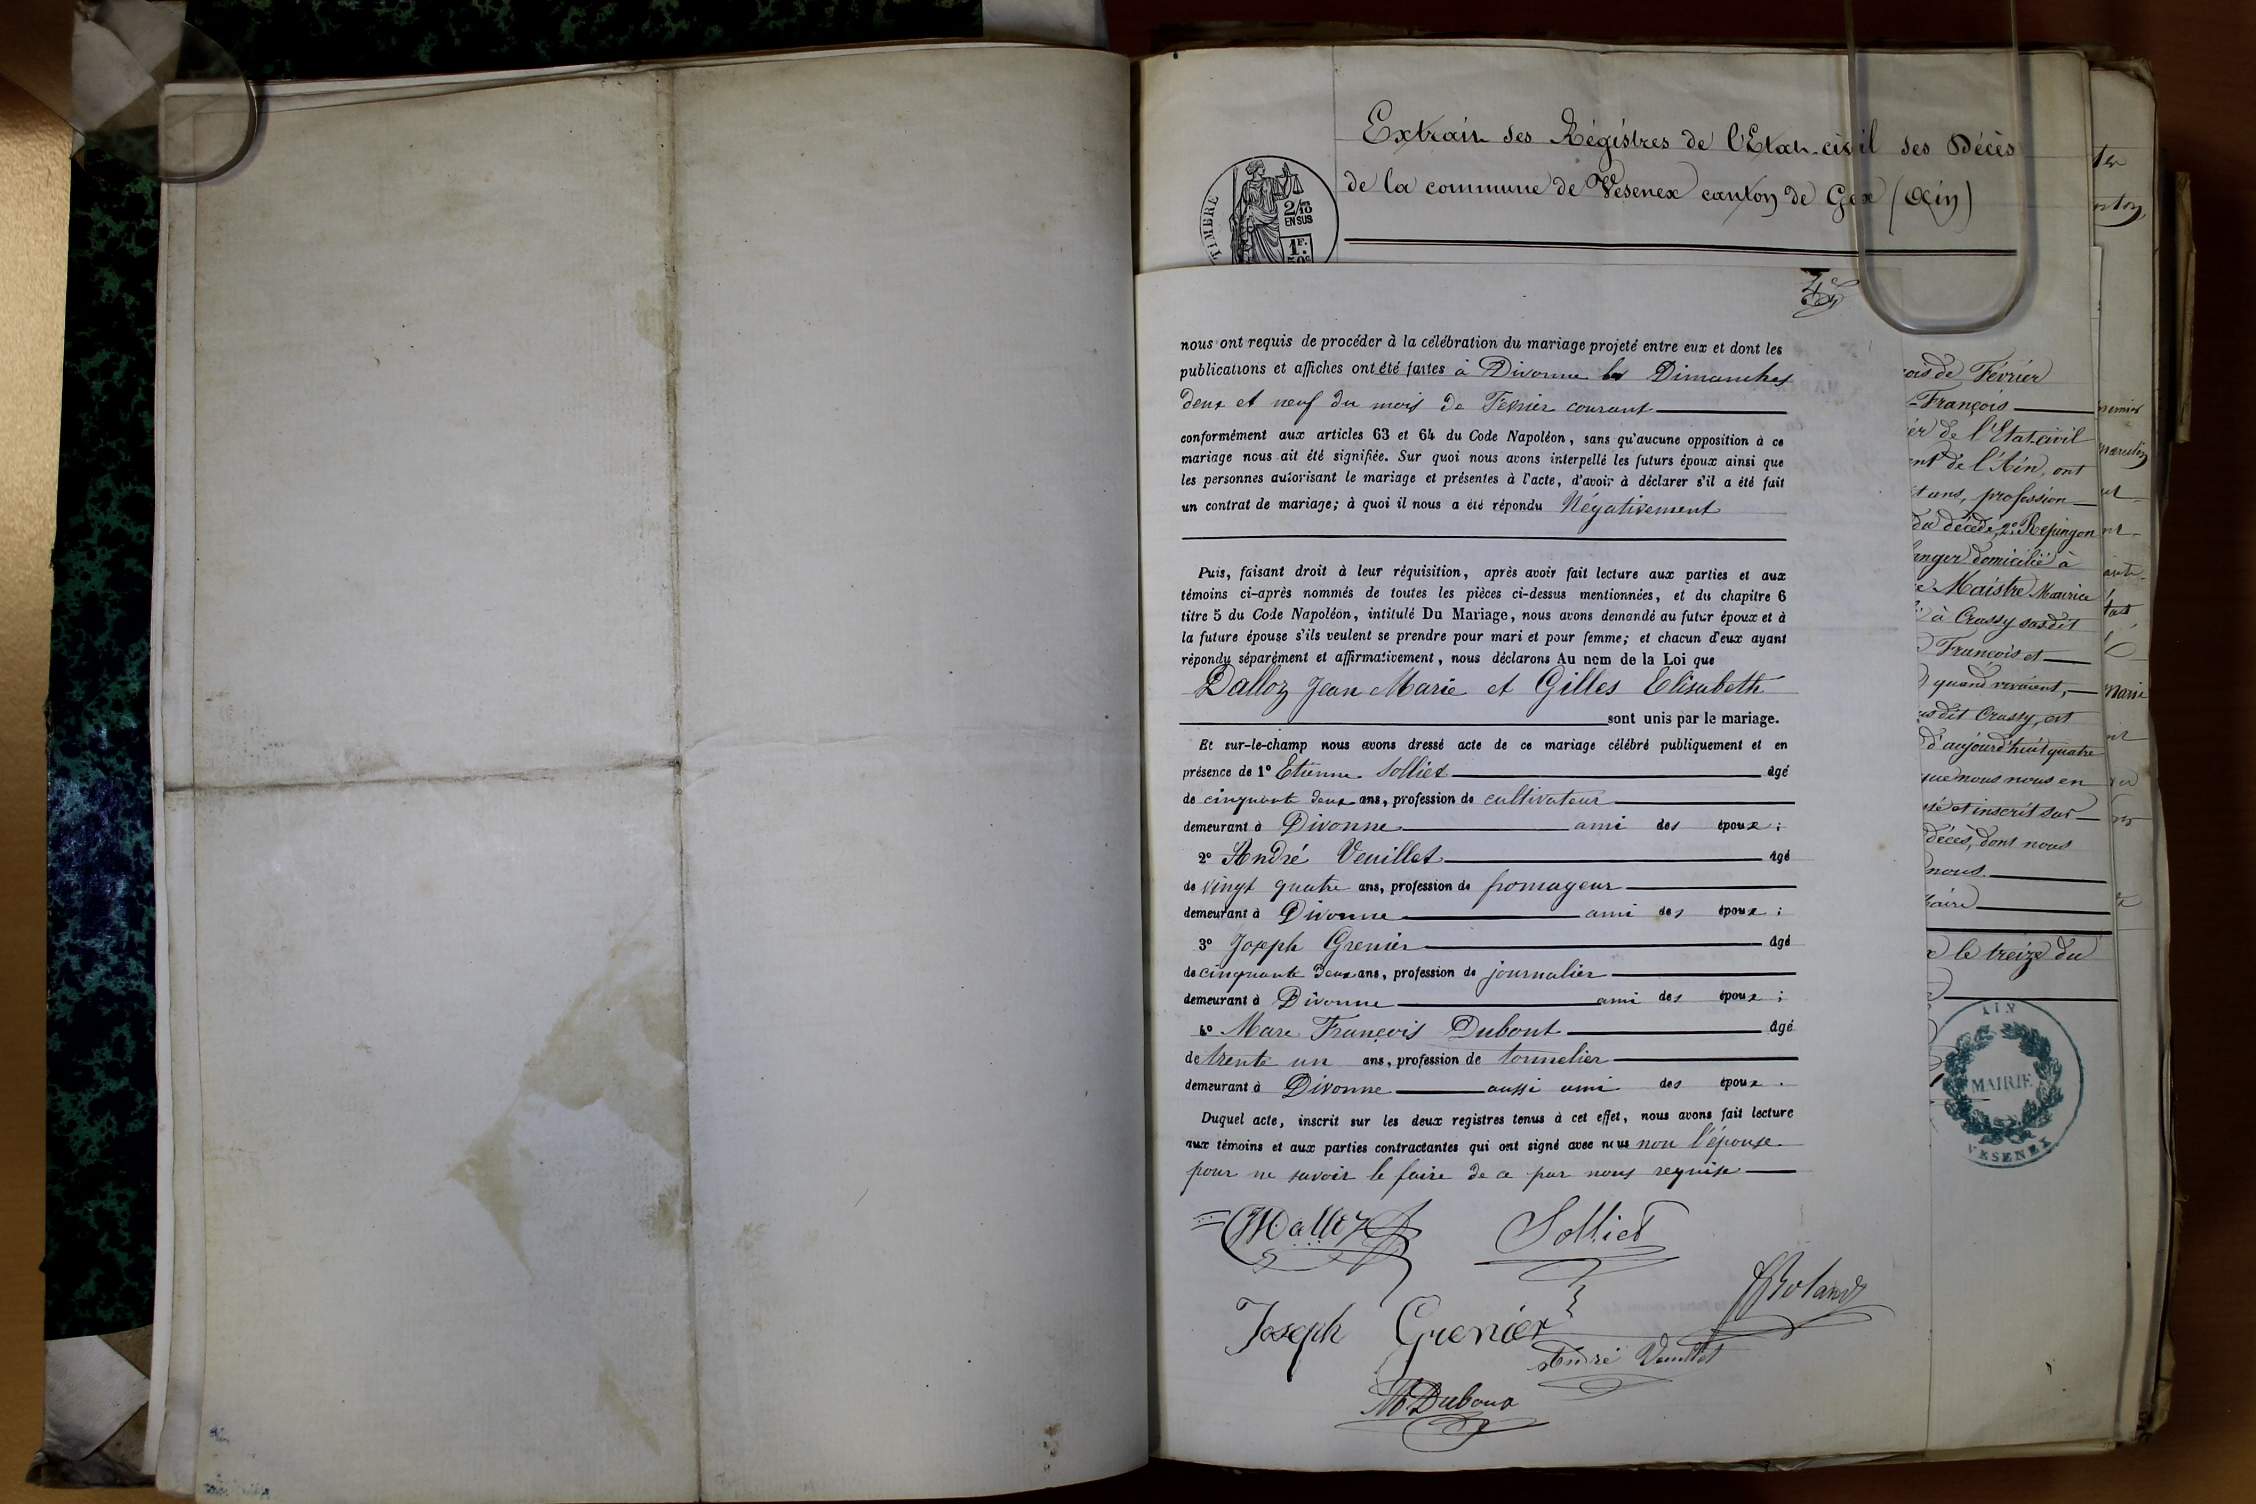 Extrait des Régistres de l'Etat-civil des Décès
de la commune de Vesenex canton de Gex (Ain)
TIMBRE
2/10
EN SUS
1F.
nous ont requis de procéder à la célébration du mariage projeté entre eux et dont les
publications et affiches ont été faites à Divonne les Dimanches
deux et neuf du mois de Fevrier courant
conformément aux articles 63 et 64 du Code Napoléon, sans qu'aucune opposition à ce
mariage nous ait été signifiée. Sur quoi nous avons interpellé les futurs époux ainsi que
les personnes autorisant le mariage et présentes à l'acte, d'avoir à déclarer s'il a été fait
un contrat de mariage; à quoi il nous a été répondu Négativement
Puis, faisant droit à leur réquisition, après avoir fait lecture aux parties et aux
témoins ci-après nommés de toutes les pièces ci-dessus mentionnées, et du chapitre 6
titre 5 du Code Napoléon, intitulé Du Mariage, nous avons demandé au futur époux et à
la future épouse s'ils veulent se prendre pour mari et pour femme; et chacun d'eux ayant
répondu séparément et affirmativement, nous déclarons Au nom de la Loi que
Dalloz Jean Marie et Gilles Elisabeth
sont unis par le mariage.
Et sur-le-champ nous avons dressé acte de ce mariage célébré publiquement et en
présence de 1° Etienne Solliet âgé
de cinquante deux ans, profession de cultivateur
demeurant à Divonne ami des époux;
2° André Veuillet âgé
de vingt quatre ans, profession de fromageur
demeurant à Divonne ami des époux;
3° Joseph Grenier âgé
de cinquante deux ans, profession de journalier
demeurant à Divonne ami des époux;
4° Marc François Dubout âgé
de trente un ans, profession de tonnelier
demeurant à Divonne aussi ami des époux.
Duquel acte, inscrit sur les deux registres tenus à cet effet, nous avons fait lecture
aux témoins et aux parties contractantes qui ont signé avec nous non l'épouse
pour ne savoir le faire de ce par nous requise
JMalloz
Solliet
Joseph Grenier
André Veuillet
ois de Février
François
er de l'Etat-civil
nt de l'Ain, ont
ans, profession
du décédé, 2°
domicilié à
Maistre Maurice
à Crassy susdit
François et
quand vivaient,
us dit Crassy, est
d'aujourd'hui quatre
que nous nous en
et inscrit sur
décès, dont nous
nous.
aire
le treize du
AIN
MAIRIE
VESENEX